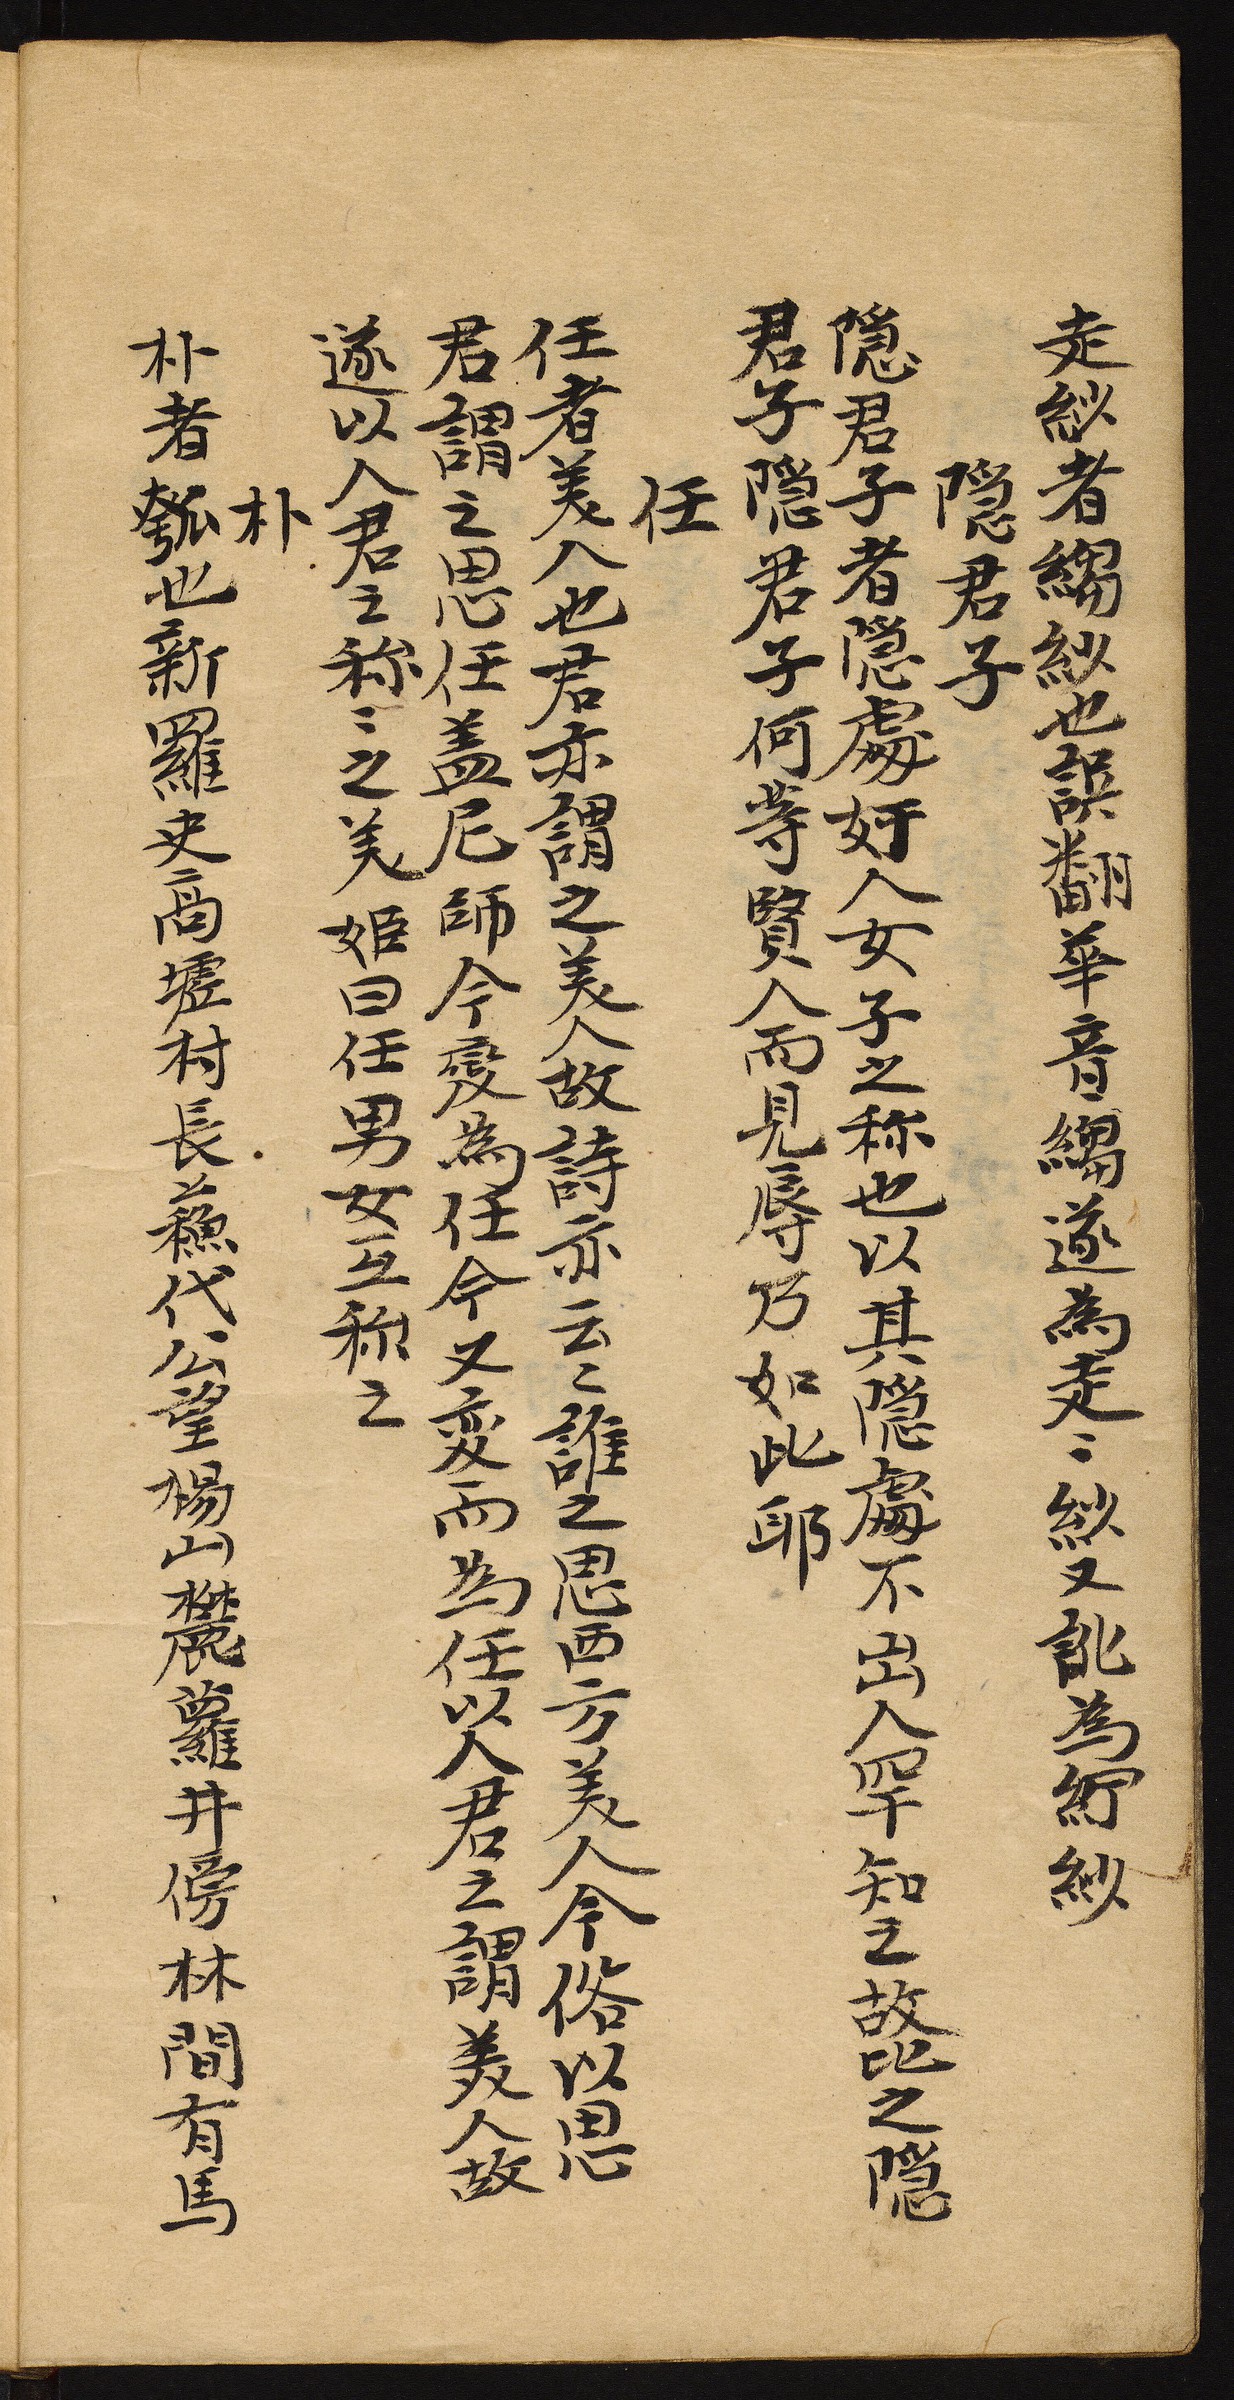 走紗者縐紗也誤翻華音縐遂為走〻紗又訛為紵紗
隠君子
隠君子者隠處奸人女子之称也以其隠處不出人罕知之故比之隠
君子隠君子何等賢人而見辱乃如此耶
任
任者美人也君亦謂之美人故詩亦云〻誰之思西方美人今俗以思
君謂之思任盖尼師今變為任今又変而為任以人君之謂美人故
遂以人君之称〻之美姫曰任男女互称之
朴
朴者瓠也新羅史高墟村長蘓代公望楊山麓蘿井傍林間有馬